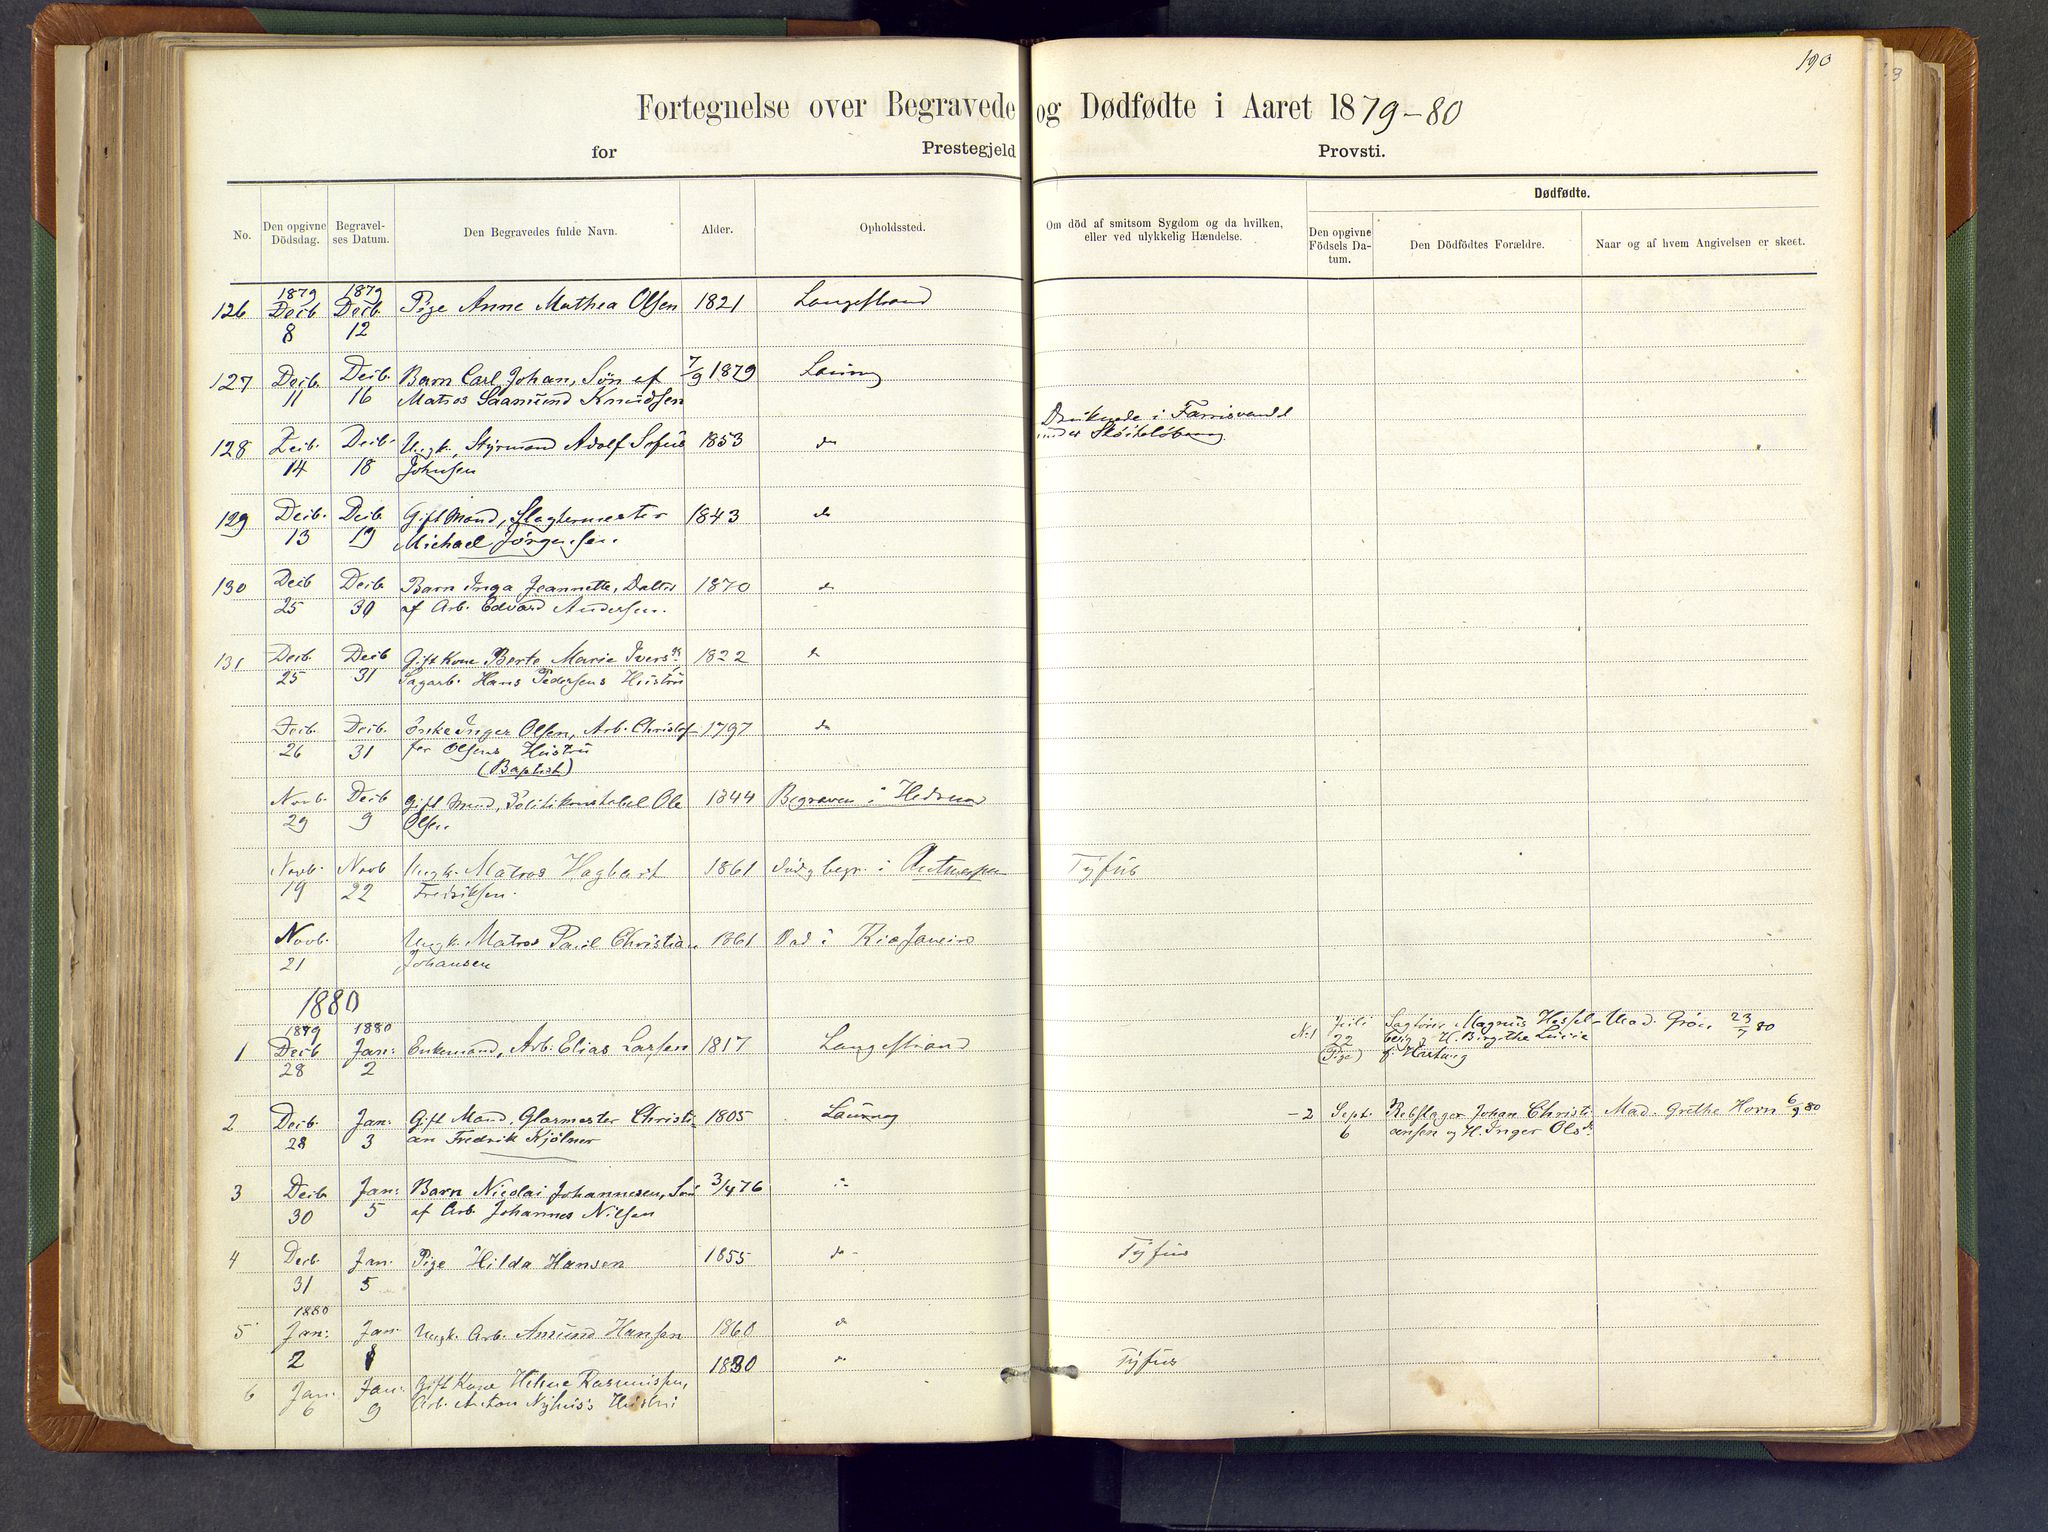 190
Fortegnelse over Begravede og Dødfødte i Aaret 1879-80
for Prestegjeld Provsti.
No.
Den opgivne Dödsdag.
Begravelses Datum.
Den Begravedes fulde Navn.
Alder.
Opholdssted.
Om död af smitsom Sygdom og da hvilken, eller ved ulykkelig Hændelse.
Dødfødte.
Den opgivne Födsels Datum.
Den Dödfödtes Forældre.
Naar og af hvem Angivelsen er skeet.
1879 1879
126 Decb. Decb. Pige Anne Mathea Olsen 1821 Langestrand
8 12
127 Decb. Decb. Barn Carl Johan, Søn af 7/9 1879 Laurvig
11 16 Matros Saamund Knudsen
Druknede i Farrisvandet
under Skøiteløbning
128 Decb. Decb. Ungk. Styrmand Adolf Sofus 1853 do
14 18 Johnsen
129 Decb. Decb Gift Mand, Slagtermester 1843 do
13 19 Michael Jørgensen.
130 Decb Decb Barn Inga Jeannette, Datter 1870 do
25 30 af Arb. Edvard Andersen.
131 Decb. Decb Gift Kone Berte Marie Ivers 1822 do
25 31 Sagarb. Hans Pedersens Hustru
Decb. Decb. Enke Inger Olsen, Arb. Christof- 1797 do
26 31 fer Olsens Hustru
(Baptist)
Novb. Decb Gift Mand, Politikonstabel Ole 1844 Begraven i Hedrum
29 9 Olsen
Novb. Novb Ungk. Matros Hagbart 1861 Død og begr. i Antwerpen Tyfus
19 22 Fredriksen.
Novb. Ungk. Matros Paul Christian 1861 Død i Rio Janeiro
21 Johansen
1880
1879 1880
1 Decb Jan: Enkemand, Arb. Elias Larsen 1817 Langestrand
28 2
No 1 Juli Sagfører Magnus Hessel- Mad. Grøn 23/7 80
22 berg og H. Birgithe Lucie
(Pige) f. Hartwig
2 Decb. Jan: Gift Mand, Glarmester Christi- 1805 Laurvig
28 3 an Fredrik Kjølner
- 2 Sept. Rebslager Johan Christi- Mad. Grethe Horn 6/9 80
6 ansen og H. Inger Olsdr
3 Decb Jan: Barn Nicolai Johannesen, Søn 3/4 76 do
30 5 af Arb. Johannes Nilsen
4 Decb. Jan. Pige Hilda Hansen 1855 do Tyfus
31 5
1880
5 Jan: Jan. Ungk. Arb. Amund Hansen 1860 do
2 8
6 Jan: Jan: Gift Kone Helene Rasmussen, 1830 do Tyfus
6 9 Arb. Anton Nyhus's Hustru